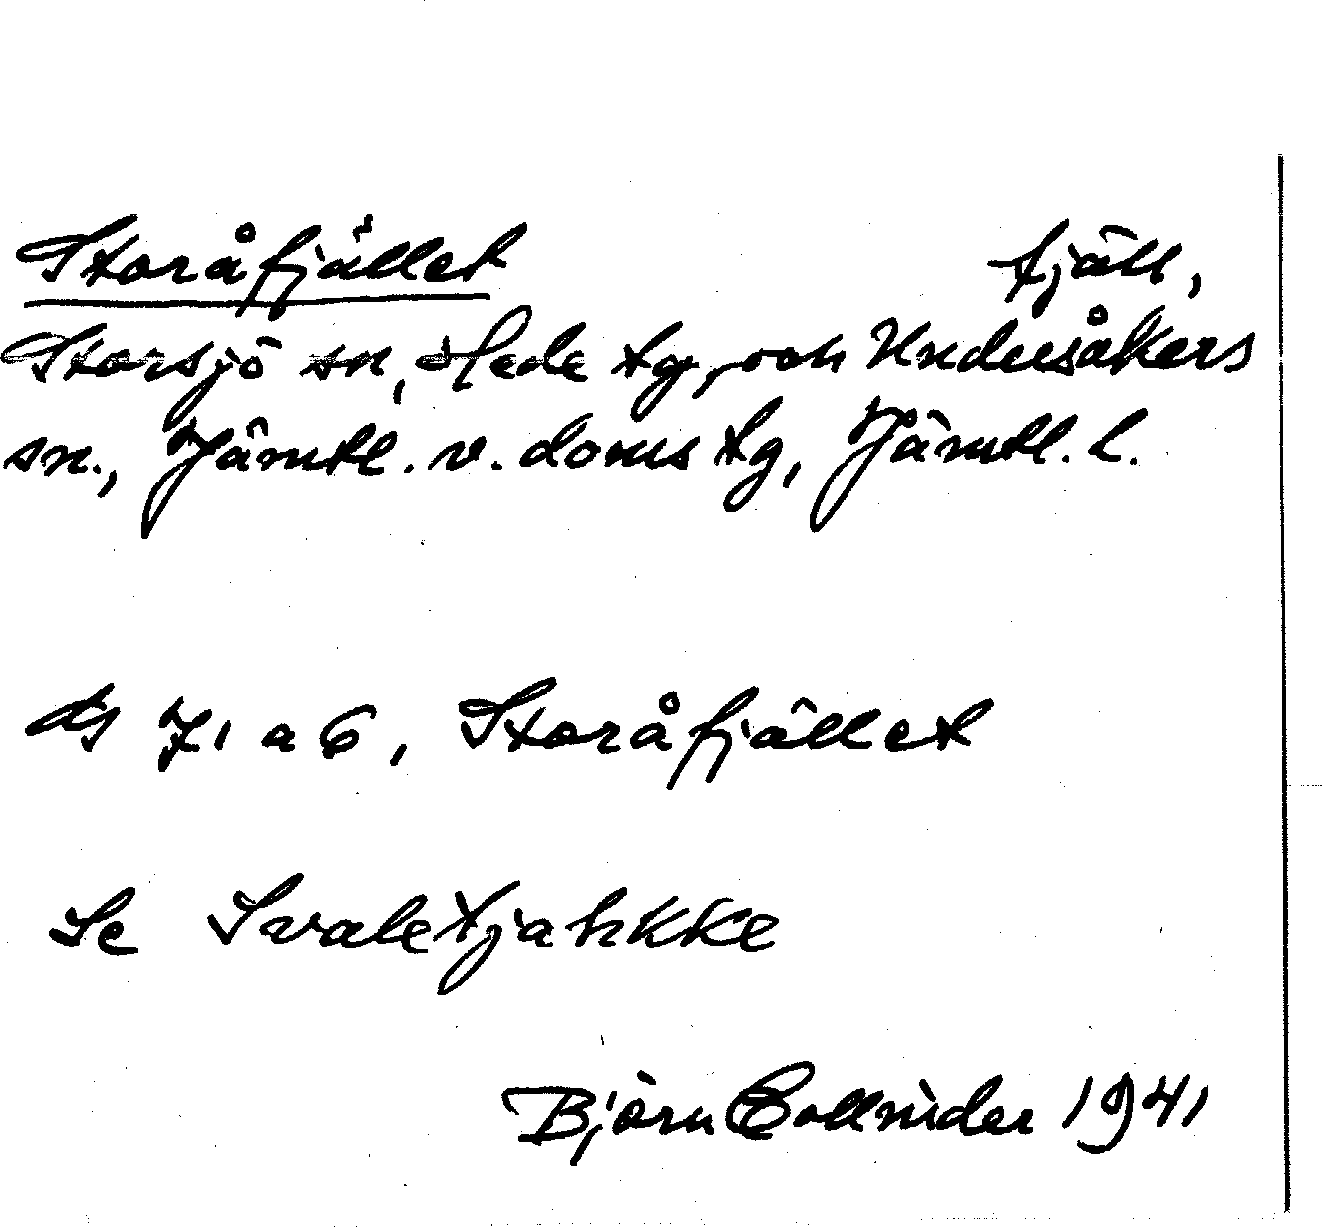 Storåfjället fjäll,
Storsjö sn, Hede tg, och Undersåkers
sn., Jämtl. v. doms tg, Jämtl. l.
ds 71 a 6, Storåfjället
Se Svaletjahkke
Björn Collinder 1941